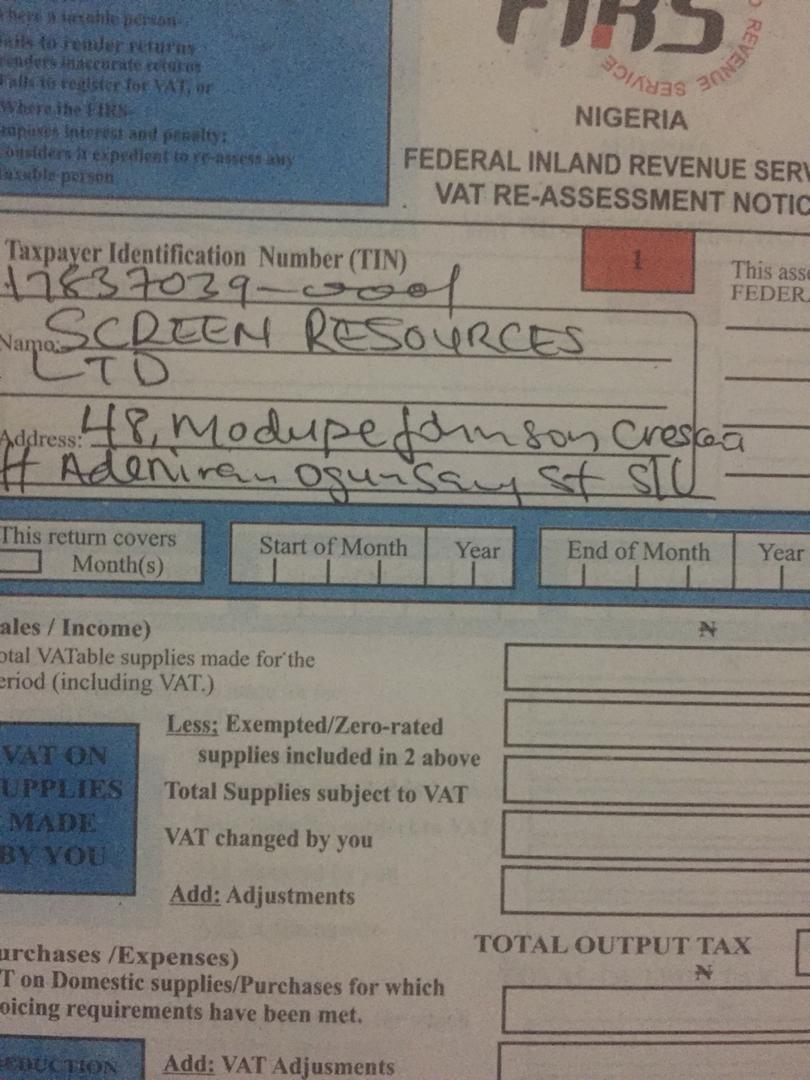 here a taxable person
ails to render returns
renders inaccurate returns
Fails to register for VAT, or
Where the FIRS-
mposes interest and penalty;
onsiders it expedient to re-assess any
taxable person
FIRS
REVENUE SERVICE
NIGERIA
FEDERAL INLAND REVENUE SERV
VAT RE-ASSESSMENT NOTIC
Taxpayer Identification Number (TIN)
17837039-0001
1
This asse
FEDER
Name: SCREEN RESOURCES
LTD
Address: 48, Modupe Johnson Cresce
Adeniran Ogunsany St S/L
This return covers
Month(s)
Start of Month
Year
End of Month
Year
ales / Income)
N
otal VATable supplies made for the
eriod (including VAT.)
Less: Exempted/Zero-rated
supplies included in 2 above
VAT ON
UPPLIES
MADE
BY YOU
Total Supplies subject to VAT
VAT changed by you
Add: Adjustments
TOTAL OUTPUT TAX
urchases /Expenses)
N
T on Domestic supplies/Purchases for which
oicing requirements have been met.
EDUCTION
Add: VAT Adjusments